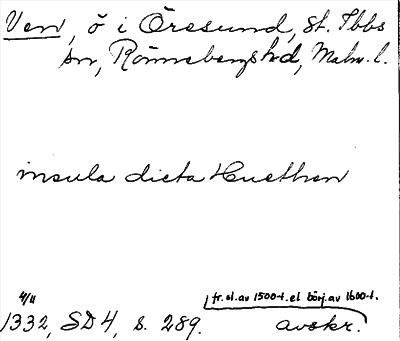 Ven, ö i Öresund, St. Ibbs
sn, Rönnebergs hd, Malm. l.
insula dicta Huethen
4/11
fr. sl. av 1500-t. el börj. av 1600-t.
1332, SD 4, s. 289. avskr.